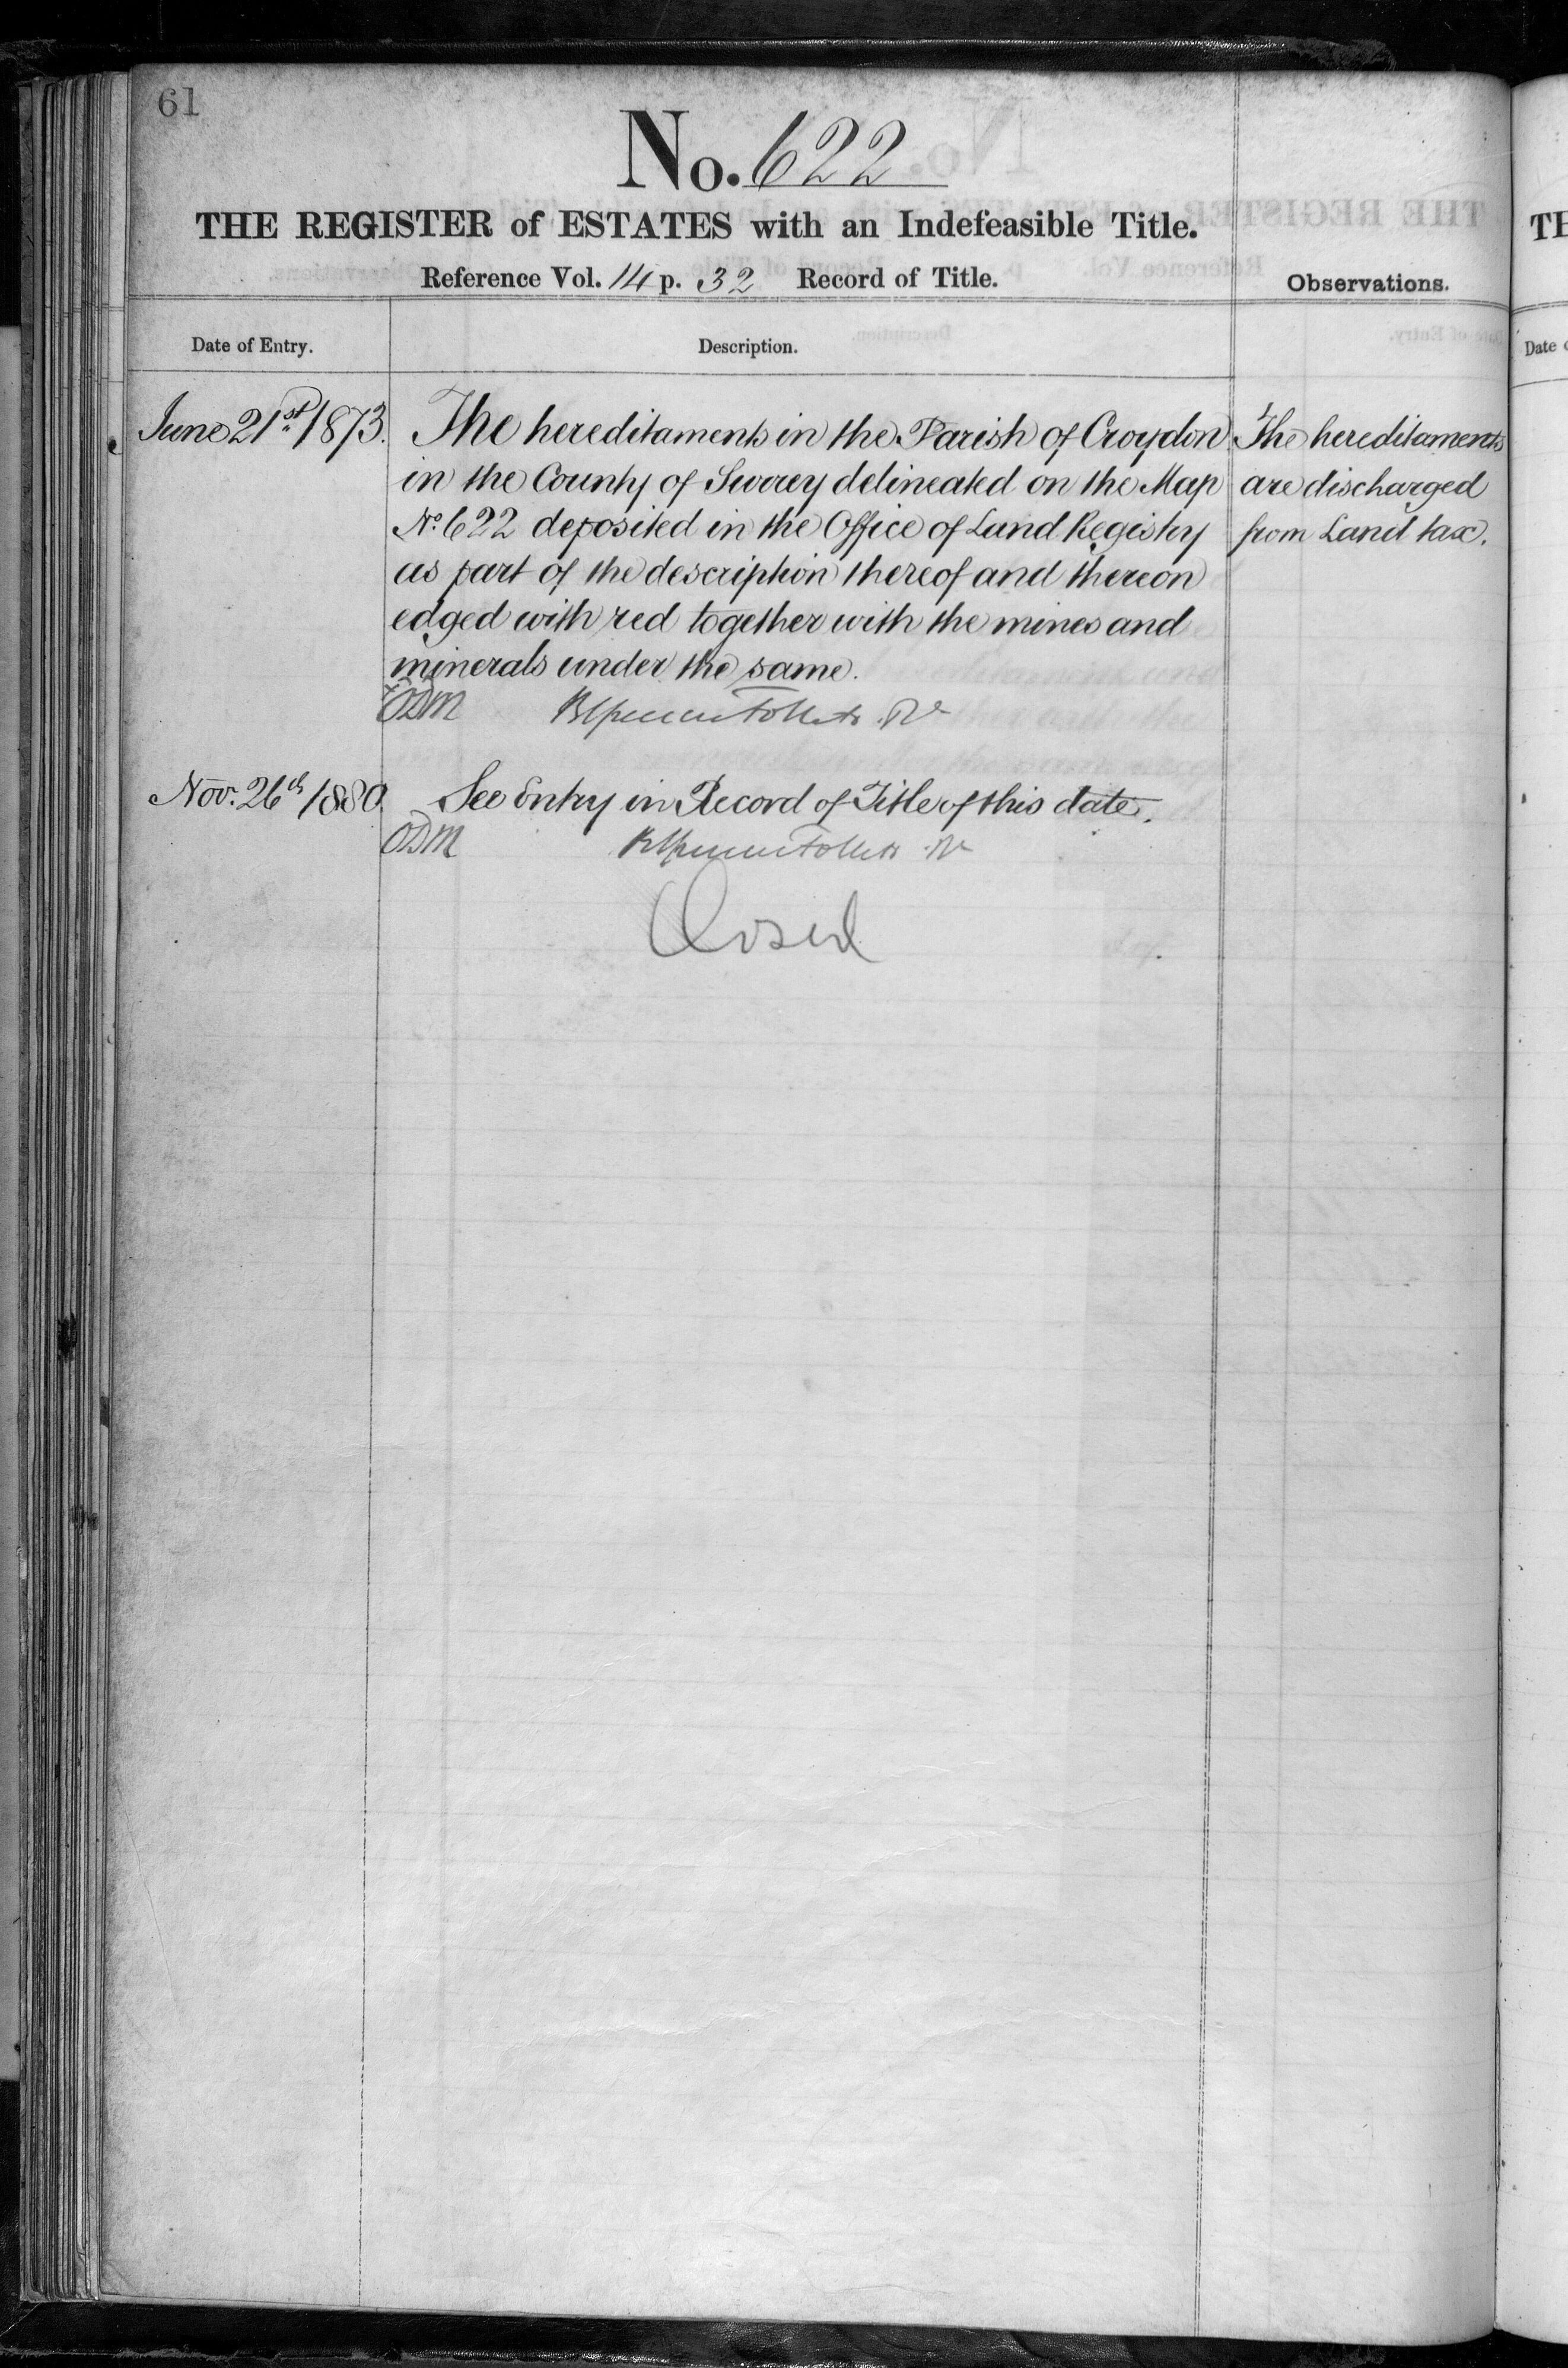 61
No. 622
THE REGISTER of ESTATES with an Indefeasible Title.
Reference Vol. 14 p. 32 Record of Title.
Observations.
Date of Entry.
Description.
June 21st 1873.
The hereditaments in the Parish of Croydon
in the County of Surrey delineated on the Map
No. 622 deposited in the Office of Land Registry
as part of the description thereof and thereon
edged with red together with the mines and
minerals under the same.
The hereditaments
are discharged
from Land tax.
ODM
Nov. 26th 1880
See Entry in Record of Title of this date.
ODM
Closed
TH
Date o